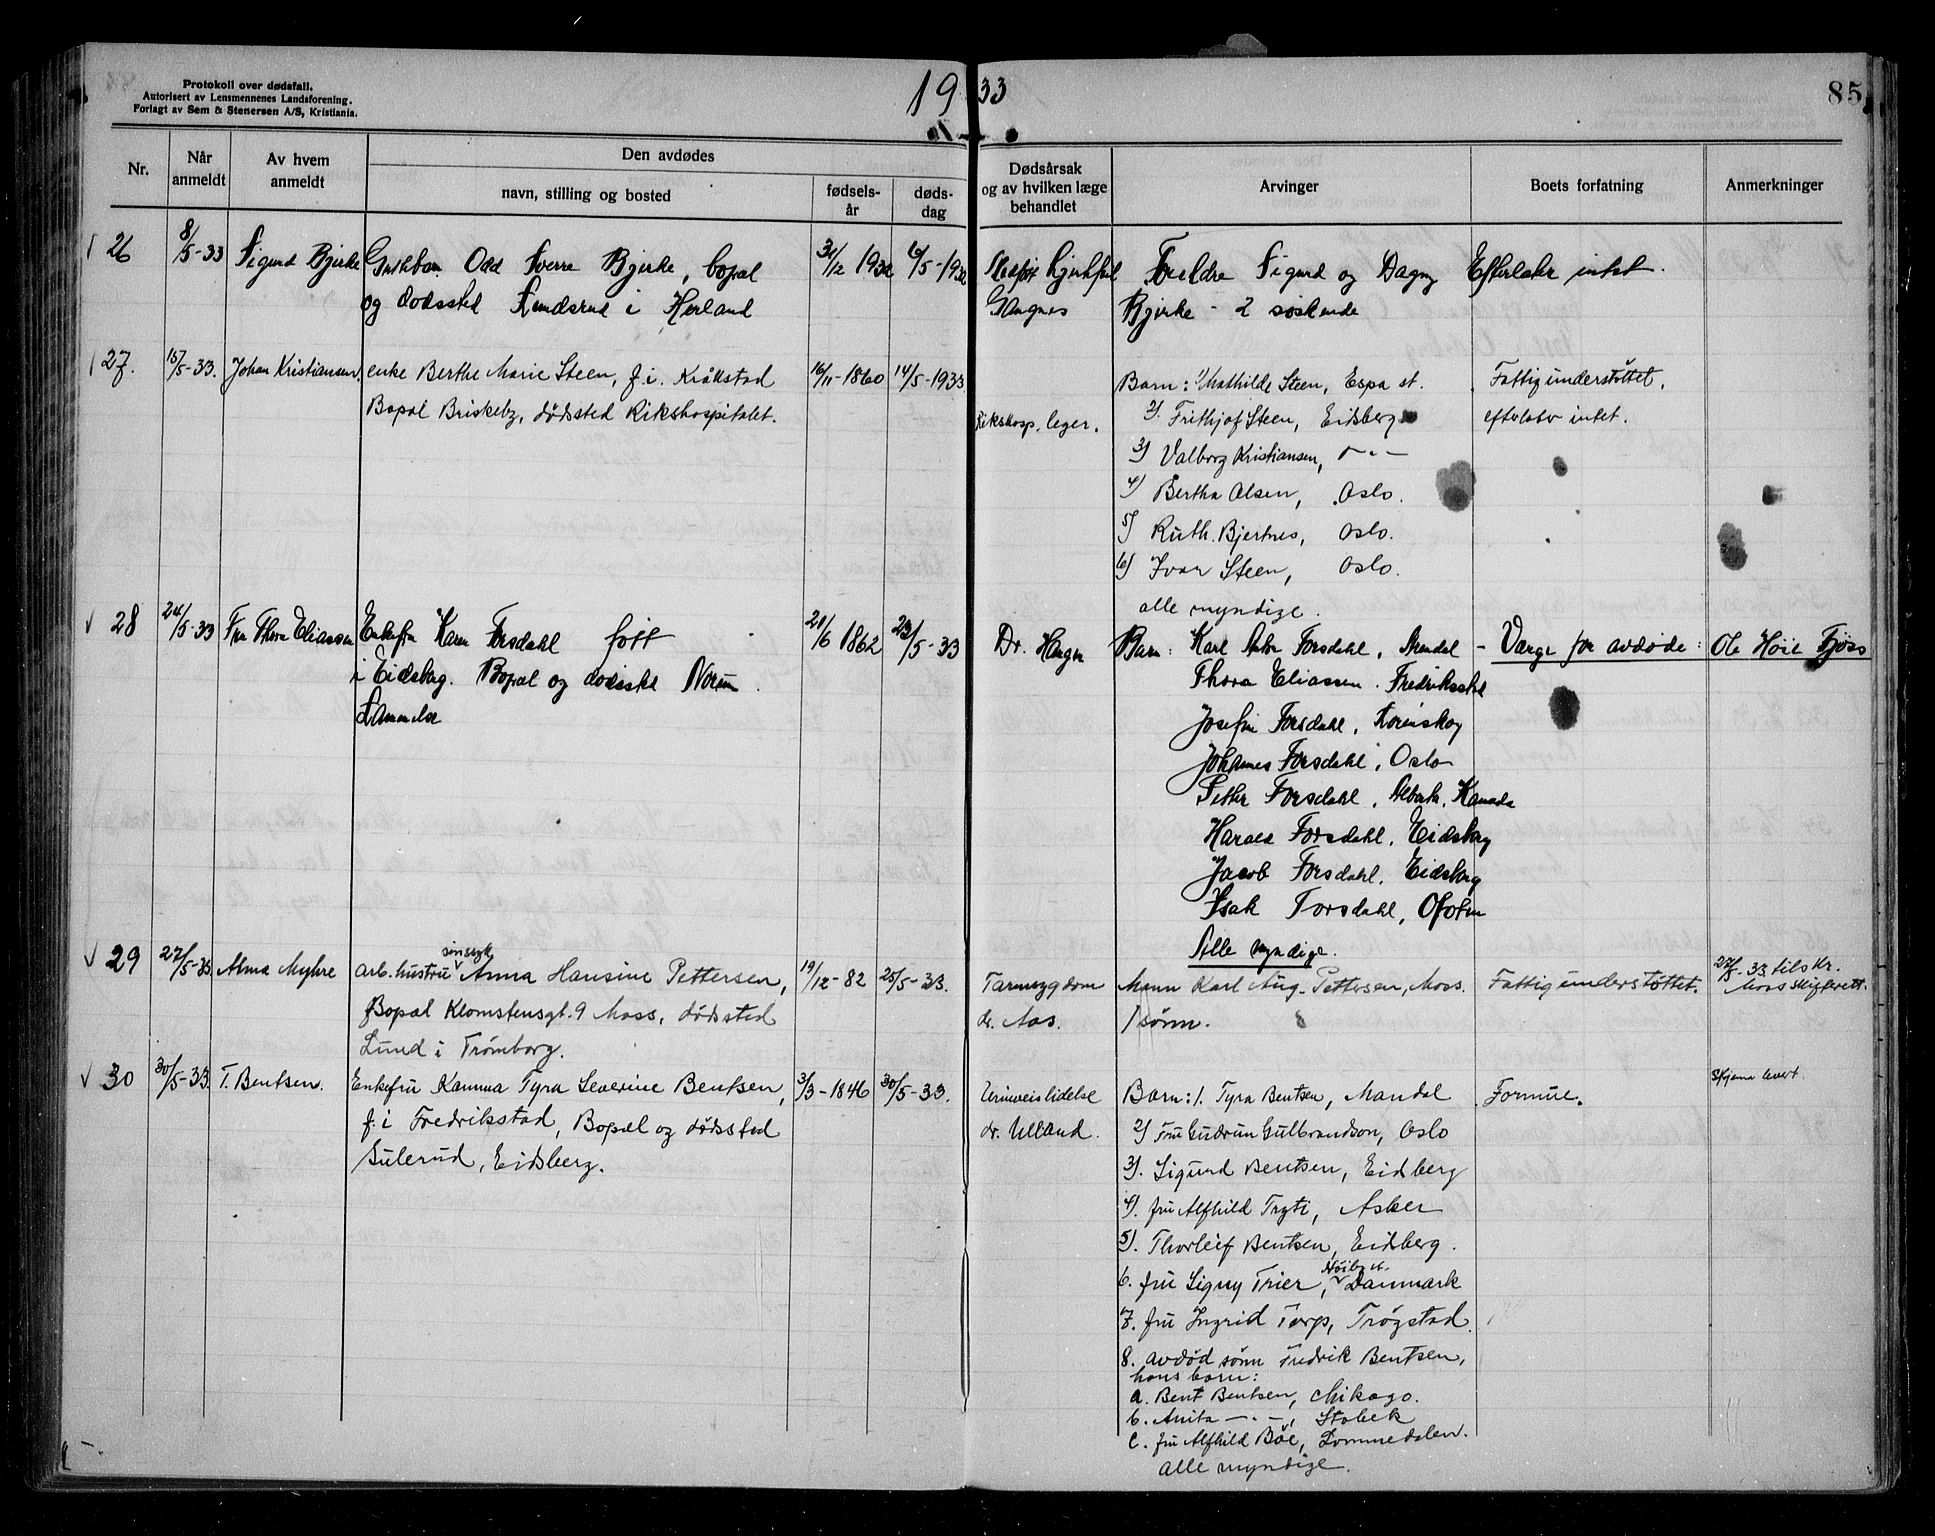 Protokoll over dødsfall.
Autorisert av Lensmennenes Landsforening.
Forlagt av Sem & Stenersen A/S, Kristiania.
1933
85
Nr.
Når anmeldt
Av hvem anmeldt
Den avdødes
navn, stilling og bosted
fødsels-år
døds-dag
Dødsårsak og av hvilken læge behandlet
Arvinger
Boets forfatning
Anmerkninger
26
8/5-33
Sigurd Bjerke
Odd Sverre Bjerke, bopæl
og dødssted i Herland
31/12 1932
6/5-1933
Foreldre Sigurd og Dagny
Bjerke - 2 søskende
Efterlater intet.
27.
15/5-33.
Johan Kristiansen.
enke Berthe Marie Steen, f. i. Kråkstad
Bopæl Briskeby, dødsted Rikshospitalet.
16/11-1860
14/5-1933
Rikshosp. leger.
Barn: 1 Mathilde Steen, Espa st.
2). Frithjof Steen, Eidsberg
3) Valborg Kristiansen, -"-
4) Bertha Olsen, Oslo.
5) Ruth. Bjertnes, Oslo.
6) Ivar Steen, Oslo.
alle myndige.
Fattigunderstøttet,
efterlater intet.
28
24/5-33
Fru Thora Eliassen
Enkefru Karen Forsdahl født
i Eidsberg. Bopæl og dødssted
21/6 1862
23/5-33
Dr.
Barn: Karl Anton Forsdahl, Arendal
Thora Eliassen. Fredriksstad
Josefine Forsdahl,
Johannes Forsdahl, Oslo
Petter Forsdahl, Alberta, Kanada
Harald Forsdahl, Eidsberg
Jacob Forsdahl. Eidsberg
Isak Forsdahl, Ofoten
Alle myndige.
- Værge for avdøde: Ole Høie Fjøss
29
27/5-33.
Alma Myhre
arb. hustru sinssyk Anna Hansine Pettersen,
Bopæl Klomstensgt. 9 Moss, dødsted
Lund i Trømborg.
19/12-82
25/5-33.
Tarmsygdom
dr. Aas.
Mann Karl Aug. Pettersen, Moss.
1 sønn.
Fattigunderstøttet.
27/5-33 til skr.
Moss skifterett.
30
30/5-33.
T. Bentsen.
Enkefru Kamma Tyra Severine Bentsen,
f. i Fredriksstad, Bopæl og dødssted
Sulerud, Eidsberg.
3/3-1846
30/5-33.
Urinveislidelse
dr. Ulland.
Barn: 1. Tyra Bentsen, Mandal
2) Fru Gudrun Gulbrandson, Oslo
3). Sigurd Bentsen, Eidsberg
4). fru Alfhild Tryti, Asker
5). Thorleif Bentsen, Eidsberg.
6. fru Signy Trier, Danmark
7. fru Ingrid Torp, Trøgstad.
8. avdød sønn Fredrik Bentsen,
hans barn:
a. Bent Bentsen, Chikago.
b. Anita -"-, Stabek
c. fru Alfhild Bøe, Lommedalen.
alle myndige.
Formue.
Skjema levert.